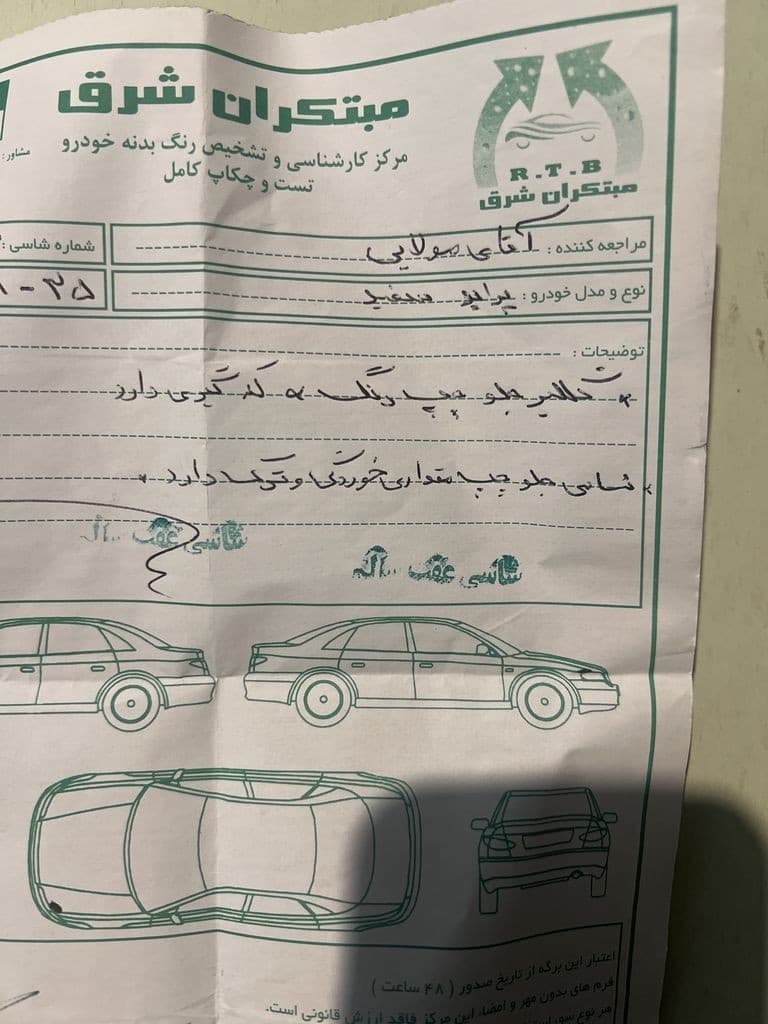 مبتکران شرق
مرکز کارشناسی و تشخیص رنگ بدنه خودرو
تست و چکاپ کامل
مشاور :
R.T.B
مبتکران شرق
مراجعه کننده : آقای مولایی
شماره شاسی :
نوع و مدل خودرو : پراید سفید
توضیحات :
* گلگیر جلو چپ رنگ * لکه گیری دارد
* شاسی جلو چپ مقداری خوردگی و ترک دارد *
شاسی عقب سالم
شاسی عقب سالم
اعتبار این برگه از تاریخ صدور ( ۴۸ ساعت )
فرم های بدون مهر و امضاء این مرکز فاقد ارزش قانونی است.
هر نوع